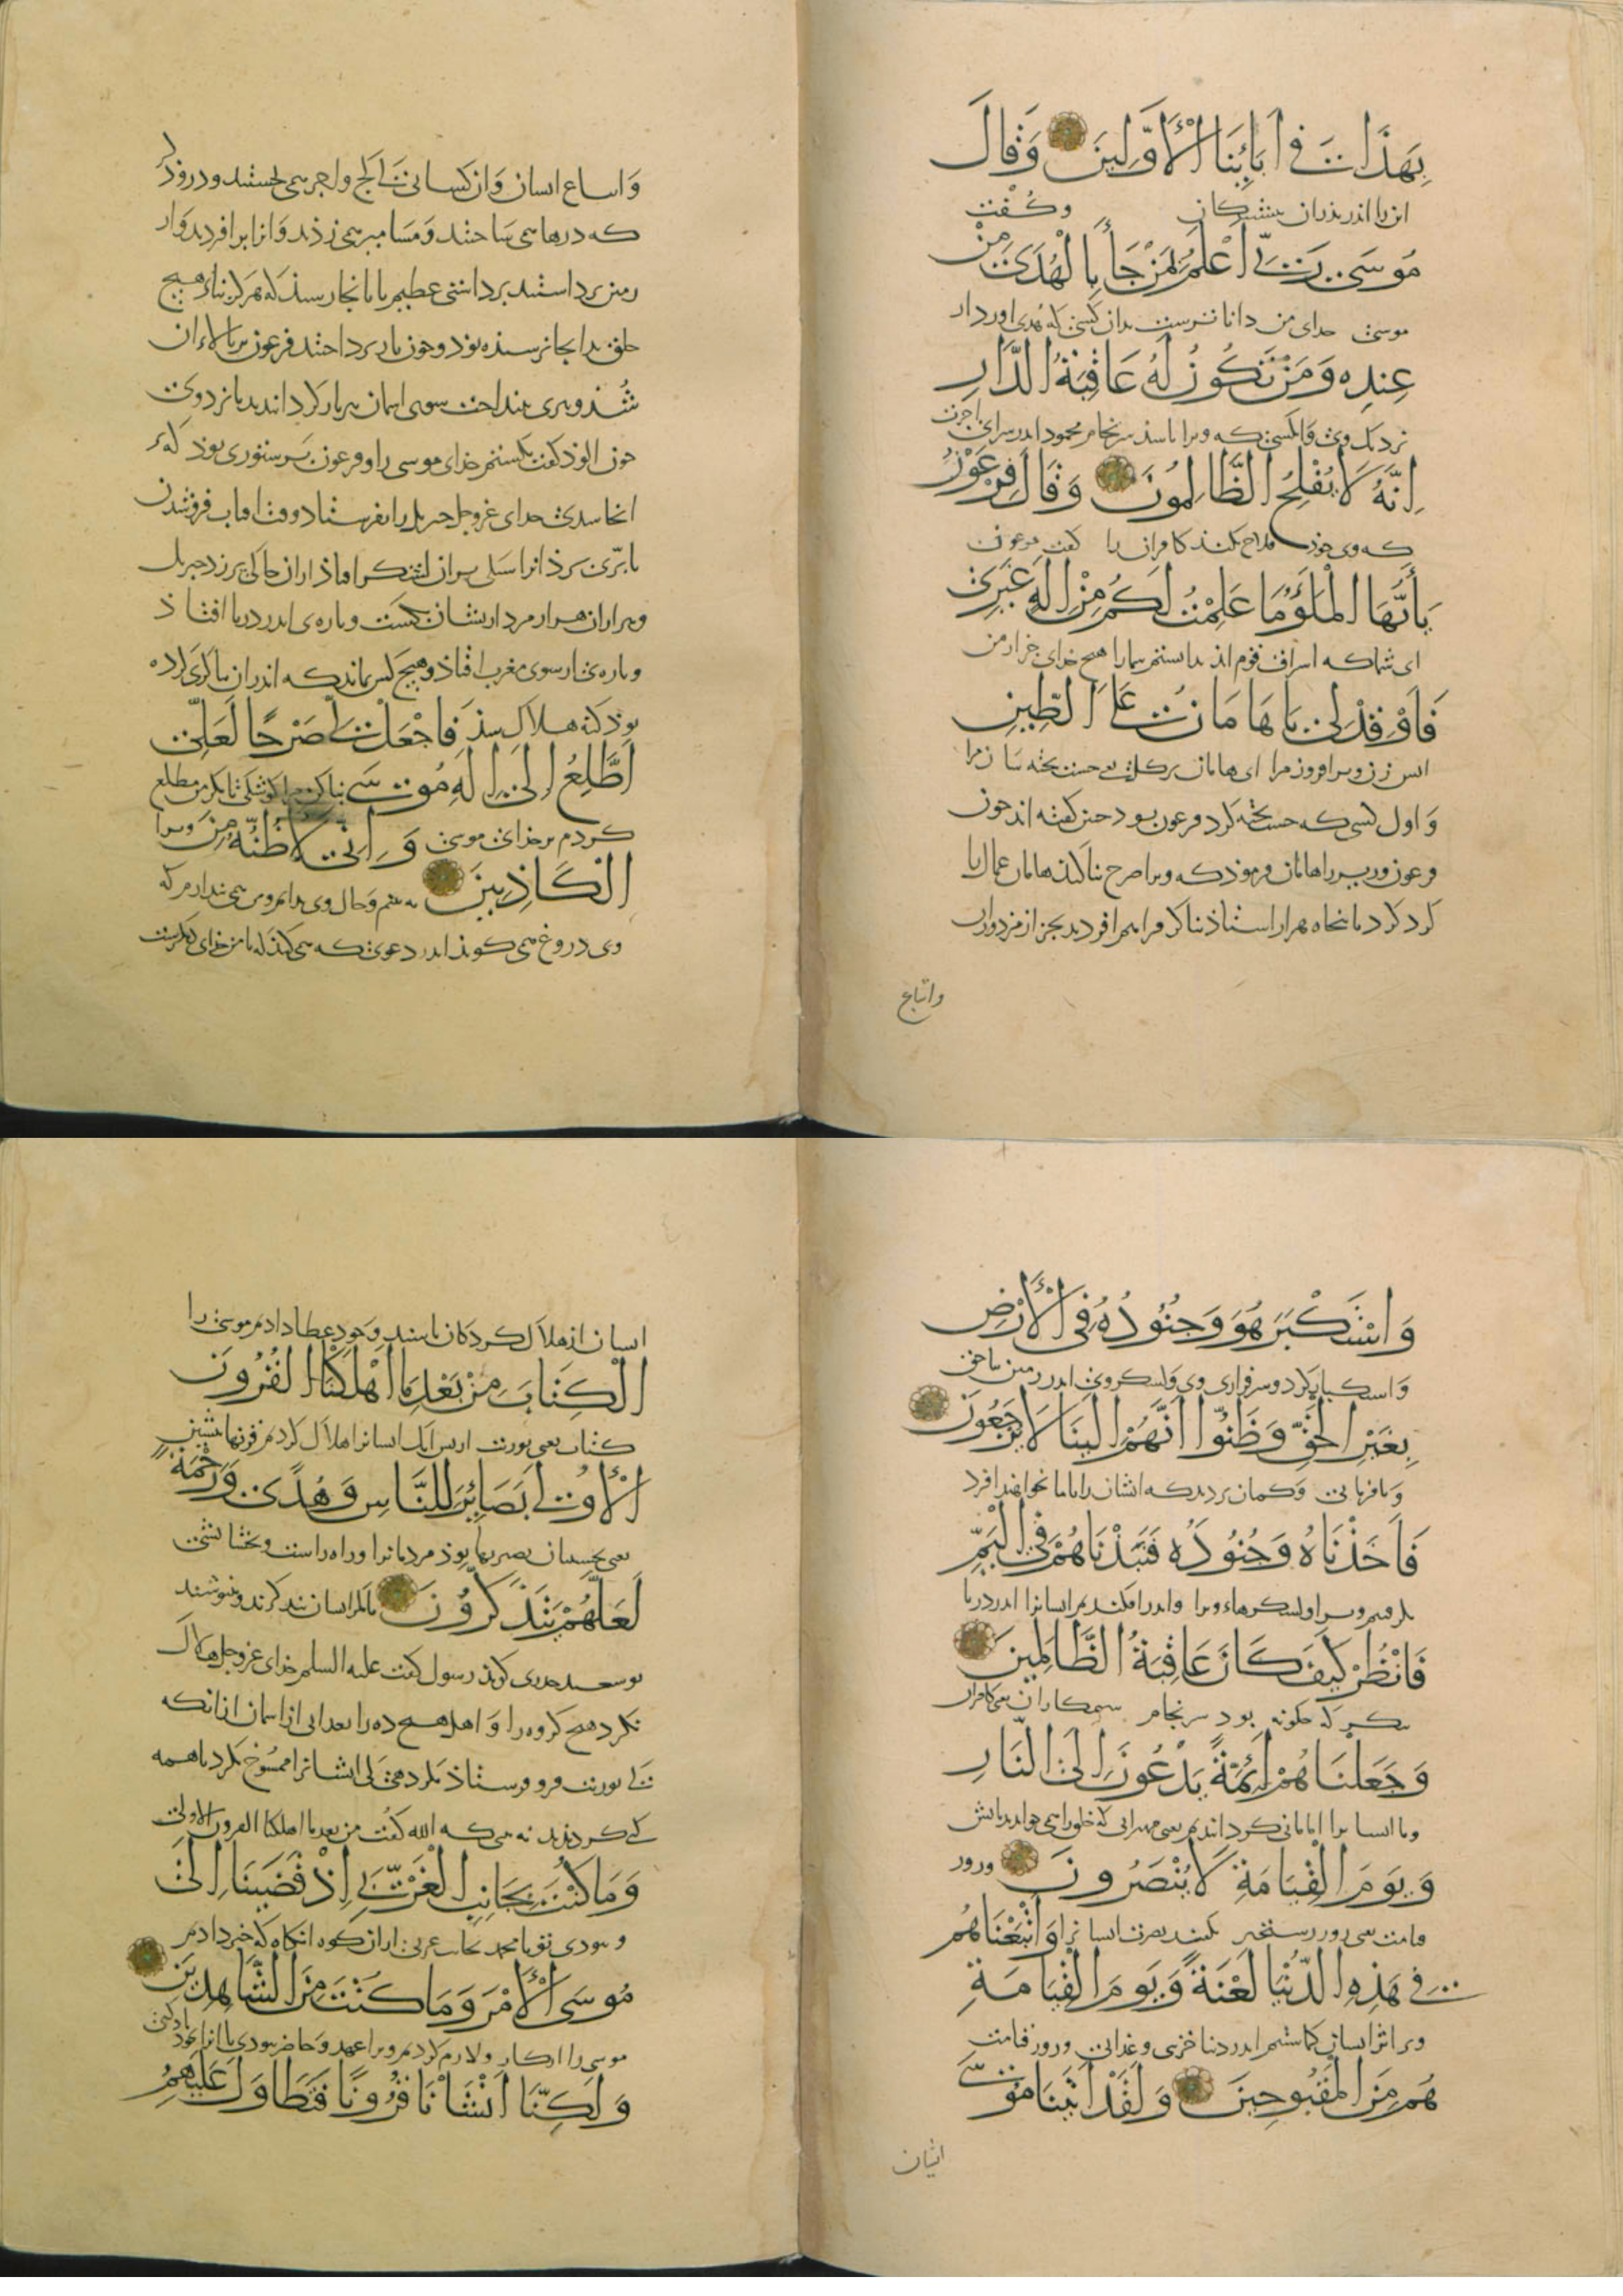 بِهَذَا فِى اَبَائِنَا الْأَوَّلِينَ وَقَالَ
این را اندر پدران پیشینگان وگفت
مُوسَى رَبِّى اَعْلَمُ بِمَنْ جَاءَ بِالْهُدَى مِنْ
موسی خدای من داناترست بدان کسی که هدی اورد از
عِنْدِهِ وَمَنْ تَكُونُ لَهُ عَاقِبَةُ الدَّارِ
نزدیک وی وانکسی که ویرا باشد سرنجام محمود اندر سرای اخرت
اِنَّهُ لَا يُفْلِحُ الظَّالِمُونَ وَقَالَ فِرْعَوْنُ
که وی خود فلاح نکند کافران را گفت فرعون
يَا أَيُّهَا الْمَلَؤُ مَا عَلِمْتُ لَكُمْ مِنْ اِلَهٍ غَيْرِى
ای شما که اشراف قوم اند ندانستم شما را هیچ خدای جز از من
فَاَوْقِدْ لِى يَا هَامَانُ عَلَى الطِّينِ
اتش زن وبرافروز مرا ای هامان بر گل یعنی خشت پخته ساز مرا
و اول کسی که خشت پخته کرد فرعون بود چنین گفته اند چون
فرعون وزیر را هامان فرمود که ویرا صرح بنا کند هامان عمال را
گرد کرد پنجاه هزار استاد بناگر فراهم اورد بجز از مزدوران
واتباع
واتباع ایشان وان کسانی که گچ واجر می پختند ودرودگر
که درها می ساختند ومسامیر می زدند وانرا برافردید وار
زمین برداشتند برداشتی عظیم تا بانجا رسید که هرگز بناء هیچ
خلق بدانجا نرسیده بود وچون بپرداختند فرعون بر بالاء ان
شد وتیری بینداخت سوی اسمان تیر باز گردانیدند بنزد وی
خون الود گفت بکشتم خدای موسی را وفرعون بر ستوری بود که
انجا شدی خدای عزوجل جبریل را بفرستاد وقت افتاب فروشدن
تا پری برزد انرا
وهزاران هزار مرد از یشان بکشت وپاره ی اندر دریا افتاد
وپاره ی از سوی مغرب افتاد وهیچ کس نماند که اندر ان کاری کرده
بود که نه هلاک شد فَاجْعَلْ لِى صَرْحًا لَعَلِّى
اَطَّلِعُ اِلَى اِلَهِ مُوسَى بنا کن مرا کوشکی تا مگر من مطلع
گردم بر خدای موسی وَاِنِّى لَاَظُنُّهُ مِنَ ویرا
الْكَاذِبِينَ به بینم وحال وی بدانم ومن می پندارم که
وی دروغ می گوید اندر دعوی که می کند که با من خدای دیگرست
وَاسْتَكْبَرَ هُوَ وَجُنُودُهُ فِى الْأَرْضِ
واستکبار کرد وسرفرازی وی ولشکر وی اندر زمین ناحق
بِغَيْرِ الْحَقِّ وَظَنُّوا اَنَّهُمْ اِلَيْنَا لَا يُرْجَعُونَ
ونافرمانی وگمان بردند که ایشان را با ما نخواهند اورد
فَاَخَذْنَاهُ وَجُنُودَهُ فَنَبَذْنَاهُمْ فِى الْيَمِّ
بگرفتیم ویرا ولشکرهاء ویرا واندر افکندیم ایشانرا اندر دریا
فَانْظُرْ كَيْفَ كَانَ عَاقِبَةُ الظَّالِمِينَ
بنگر که چگونه بود سرنجام ستمکاران یعنی کافران
وَجَعَلْنَاهُمْ اَئِمَّةً يَدْعُونَ اِلَى النَّارِ
وما ایشانرا امامانی گردانیدیم یعنی مهترانی که خلق را می خواندند باتش
وَيَوْمَ الْقِيَامَةِ لَا يُنْصَرُونَ وروز
قیامت یعنی روز رستخیز نکنند نصرت ایشانرا وَاَتْبَعْنَاهُمْ
فِى هَذِهِ الدُّنْيَا لَعْنَةً وَيَوْمَ الْقِيَامَةِ
وبر اثر ایشان گماشتیم اندر دنیا خزی وعذابی وروز قیامت
هُمْ مِنَ الْمَقْبُوحِينَ وَلَقَدْ اَتَيْنَا مُوسَى
ایشان
ایشان از هلاک کردگان باشند وخود عطا دادیم موسی را
الْكِتَابَ مِنْ بَعْدِ مَا اَهْلَكْنَا الْقُرُونَ
کتاب یعنی توریت از پس انک ایشانرا هلاک کردیم قرنها پیشین
الْأُولَى بَصَائِرَ لِلنَّاسِ وَهُدًى وَرَحْمَةً
یعنی بچشمان بصیرتها بود مردمانرا وراه راست وبخشایشی
لَعَلَّهُمْ يَتَذَكَّرُونَ تا مگر ایشان پند گیرند وبنیوشند
بوسعید خدری گوید رسول گفت علیه السلم خدای عزوجل هلاک
نکرد هیچ گروه را واهل هیچ ده را بعذابی از اسمان از انکه
توریت فرو فرستاد مگر دهی کی ایشانرا ممسوخ کرد با همه
کی گردیدند نه بینی که الله گفت من بعد ما اهلکنا القرون الاولی
وَمَا كُنْتَ بِجَانِبِ الْغَرْبِىِّ اِذْ قَضَيْنَا اِلَى
ونبودی تو یا محمد بجانب غربی از ان کوه انگاه که خبر دادیم
مُوسَى الْأَمْرَ وَمَا كُنْتَ مِنَ الشَّاهِدِينَ
موسی را از کار ولازم کردیم ویرا عهد وحاضر نبودی تا انرا از خود یاد کنی
وَلَكِنَّا اَنْشَاْنَا قُرُونًا فَتَطَاوَلَ عَلَيْهِمُ